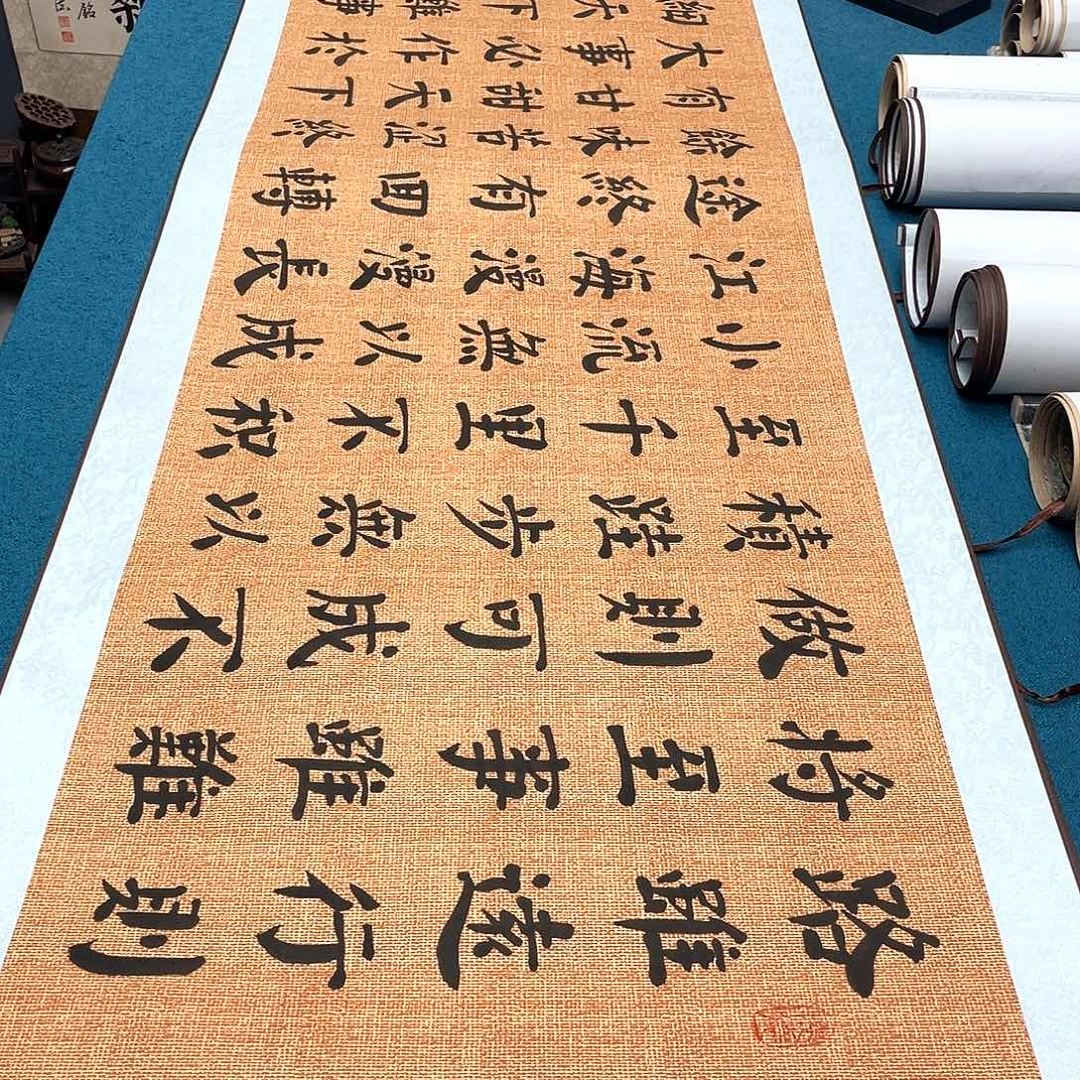 路雖遠行則
将至事雖難
做則可成不
積跬步無以
至千里不积
小流無以成
江海漫漫長
途終有回轉
餘味苦涩終
有甘甜天下
大事必作於
細天下難事
銘